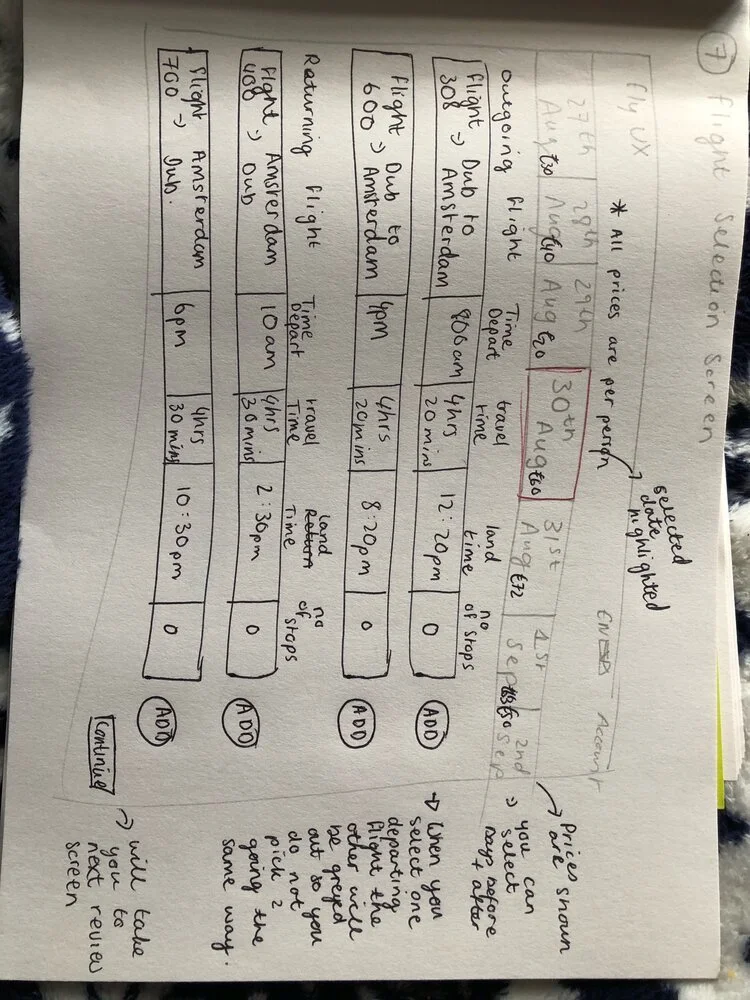 7 flight Selection Screen
fly UX
Account
* All prices are per person
selected
date
highlighted
27th
Aug €30
28th
Aug €40
29th
Aug €20
30th
Aug €60
31st
Aug €72
1st
Sep
2nd
Sep
Prices shown
are
=> you can
select
days before
+ after
Outgoing flight
Time
Depart
travel
time
land
time
no
of stops
flight Dub to
308 => Amsterdam
800am
4hrs
20mins
12:20pm
0
ADD
Flight Dub to
600 => Amsterdam
4pm
4hrs
20mins
8:20pm
0
ADD
When you
select one
departing
flight the
other will
be greyed
out so you
do not
pick 2
going the
same way.
Returning flight
Time
Depart
travel
Time
land
Return
Time
no
of stops
flight Amsterdam
408 => Dub
10am
4hrs
30mins
2:30pm
0
ADD
flight Amsterdam
700 => Dub.
6pm
4hrs
30mins
10:30pm
0
ADD
Continue
will take
you to
next review
screen